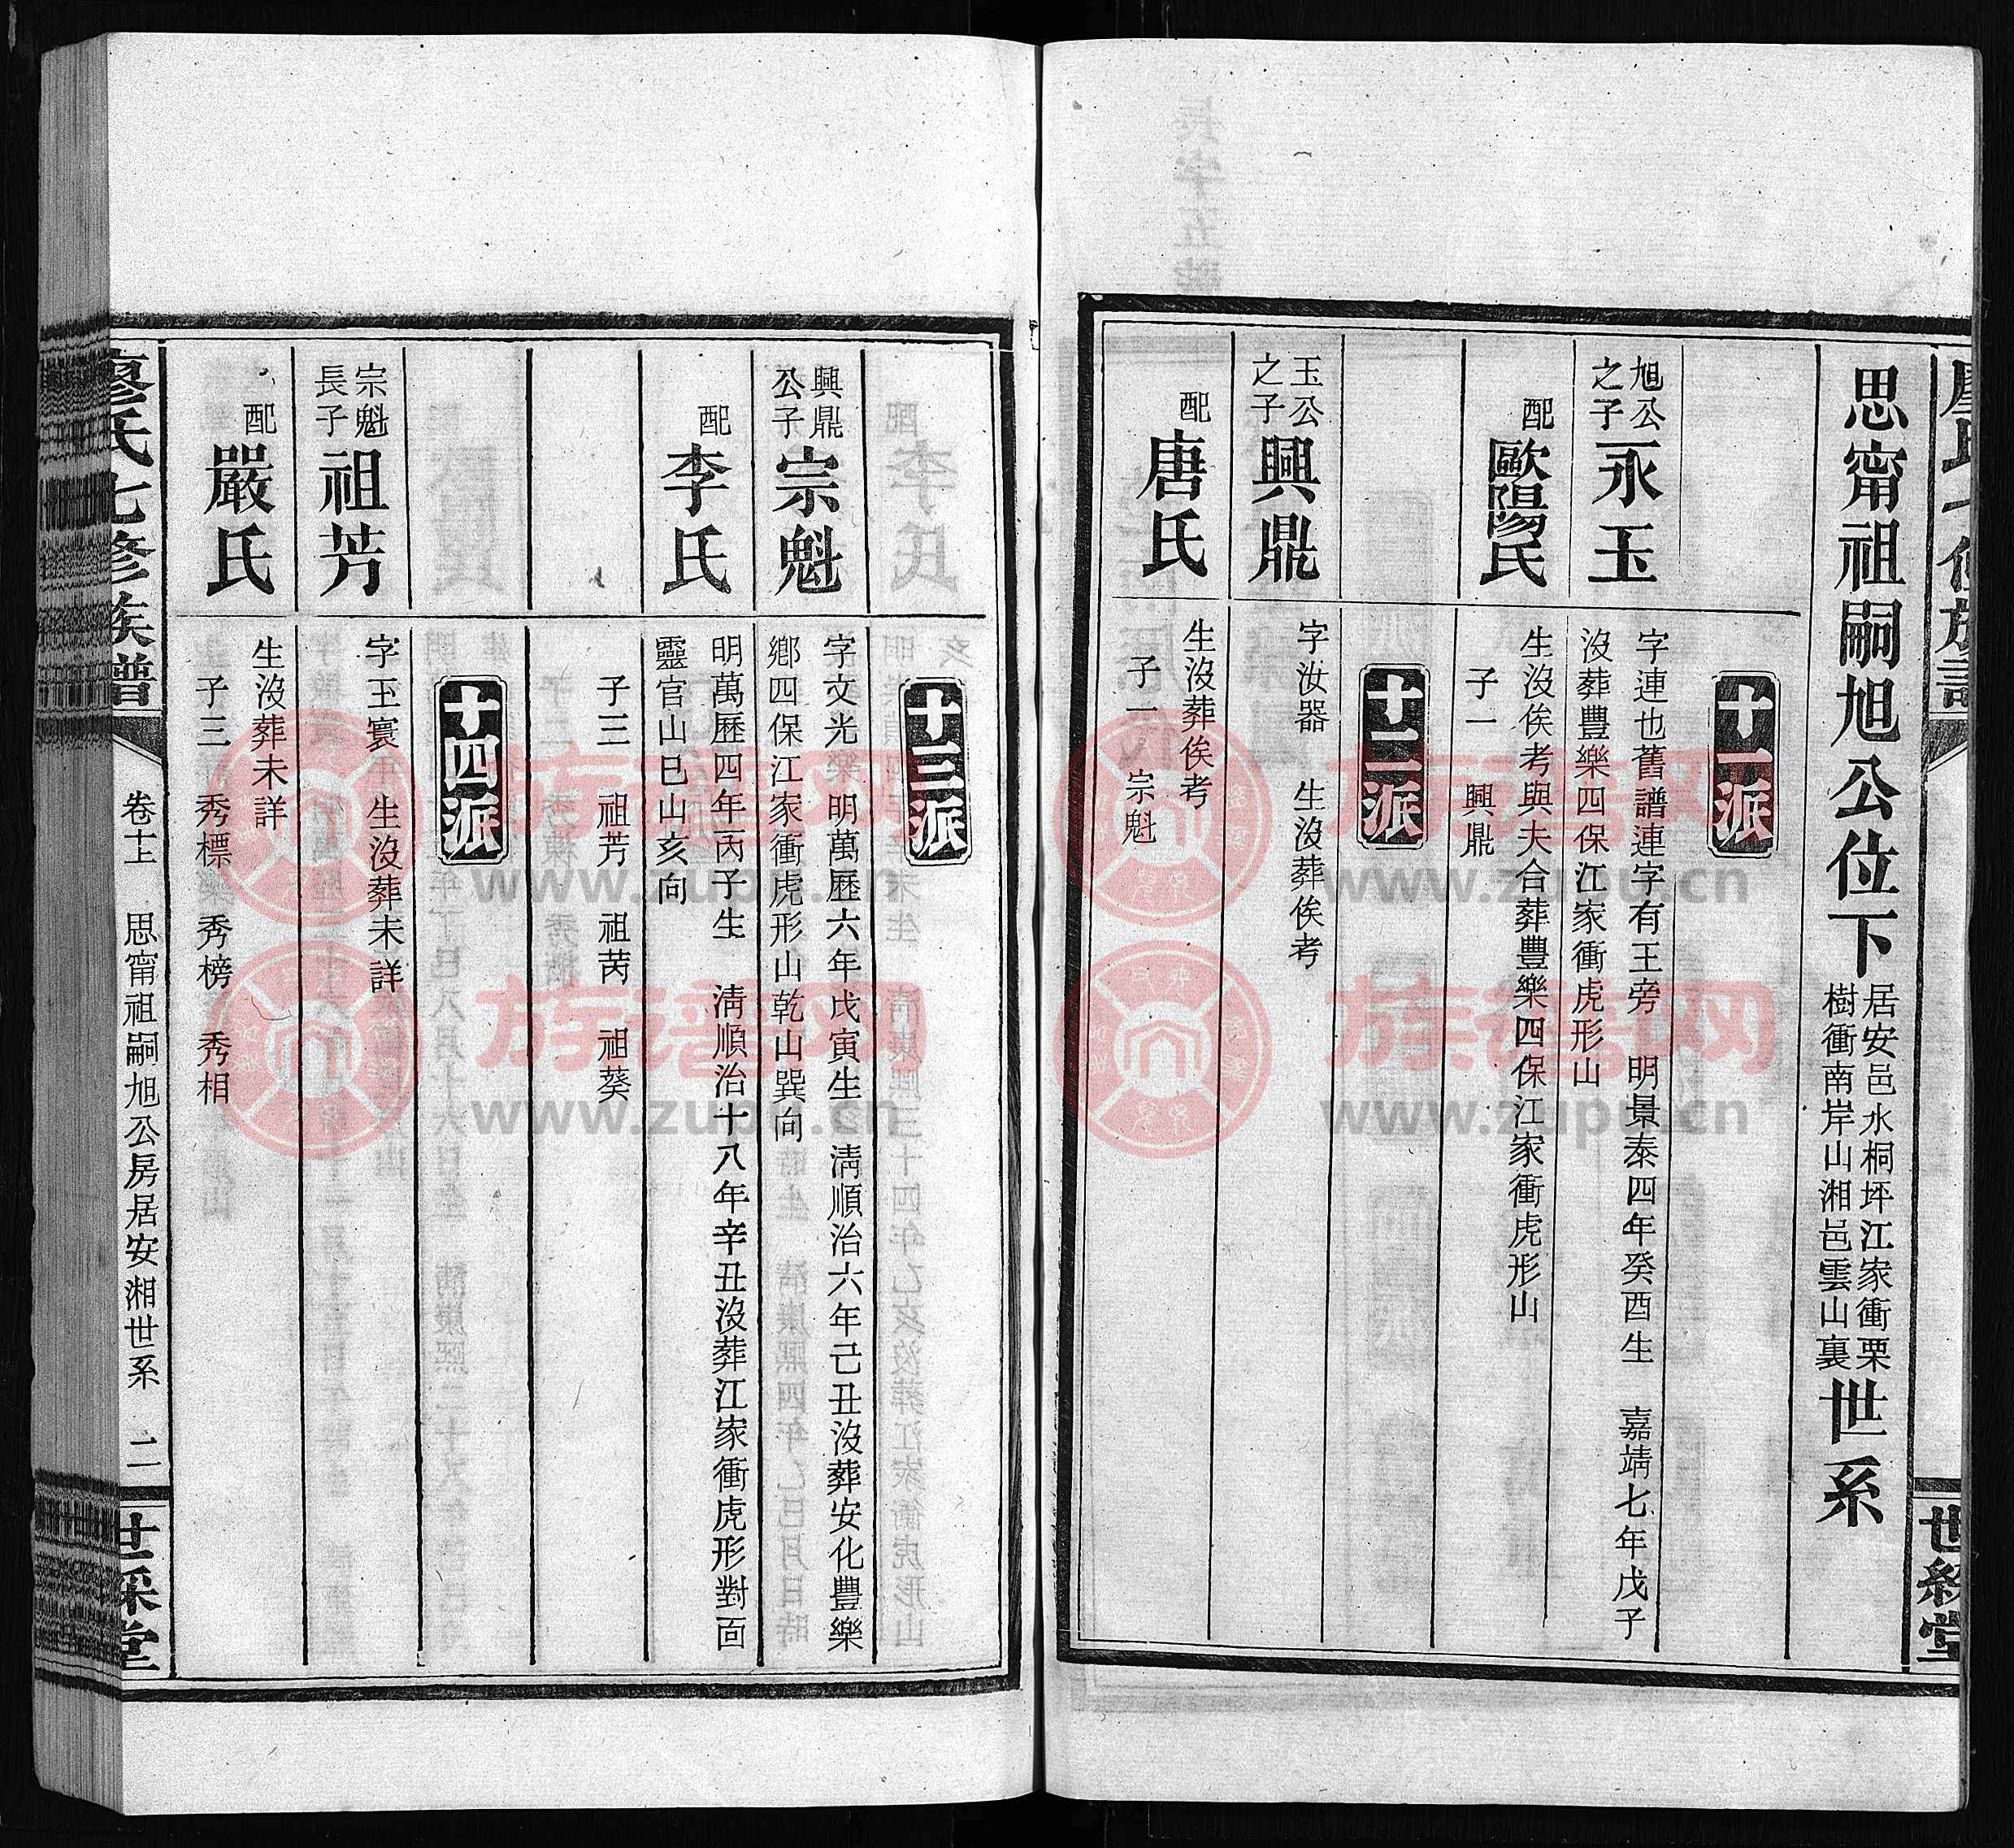 思甯祖嗣旭公位下居安邑水桐坪江家衝栗樹衝南岸山湘邑雲山裏世系
十一派
旭公之子永玉
字連也舊譜連字有王旁 明景泰四年癸酉生 嘉靖七年戊子
沒葬豐樂四保江家衝虎形山
配歐陽氏
生沒俟考與夫合葬豐樂四保江家衝虎形山
子一 興鼎
十二派
玉公之子興鼎
字汝器 生沒葬俟考
配唐氏
生沒葬俟考
子一 宗魁
世綵堂
十三派
興鼎公子宗魁
字文光 明萬歷六年戊寅生 淸順治六年己丑沒葬安化豐樂
鄉四保江家衝虎形山乾山巽向
配李氏
明萬歷四年丙子生 淸順治十八年辛丑沒葬江家衝虎形對面
靈官山巳山亥向
子三 祖芳 祖苪 祖葵
十四派
宗魁長子祖芳
字玉寰 生沒葬未詳
配嚴氏
生沒葬未詳
子三 秀標 秀榜 秀相
廖氏七修族譜
卷十上 思甯祖嗣旭公房居安湘世系 二
世綵堂
族谱网
www.zupu.cn
族谱网
www.zupu.cn
族谱网
www.zupu.cn
族谱网
www.zupu.cn